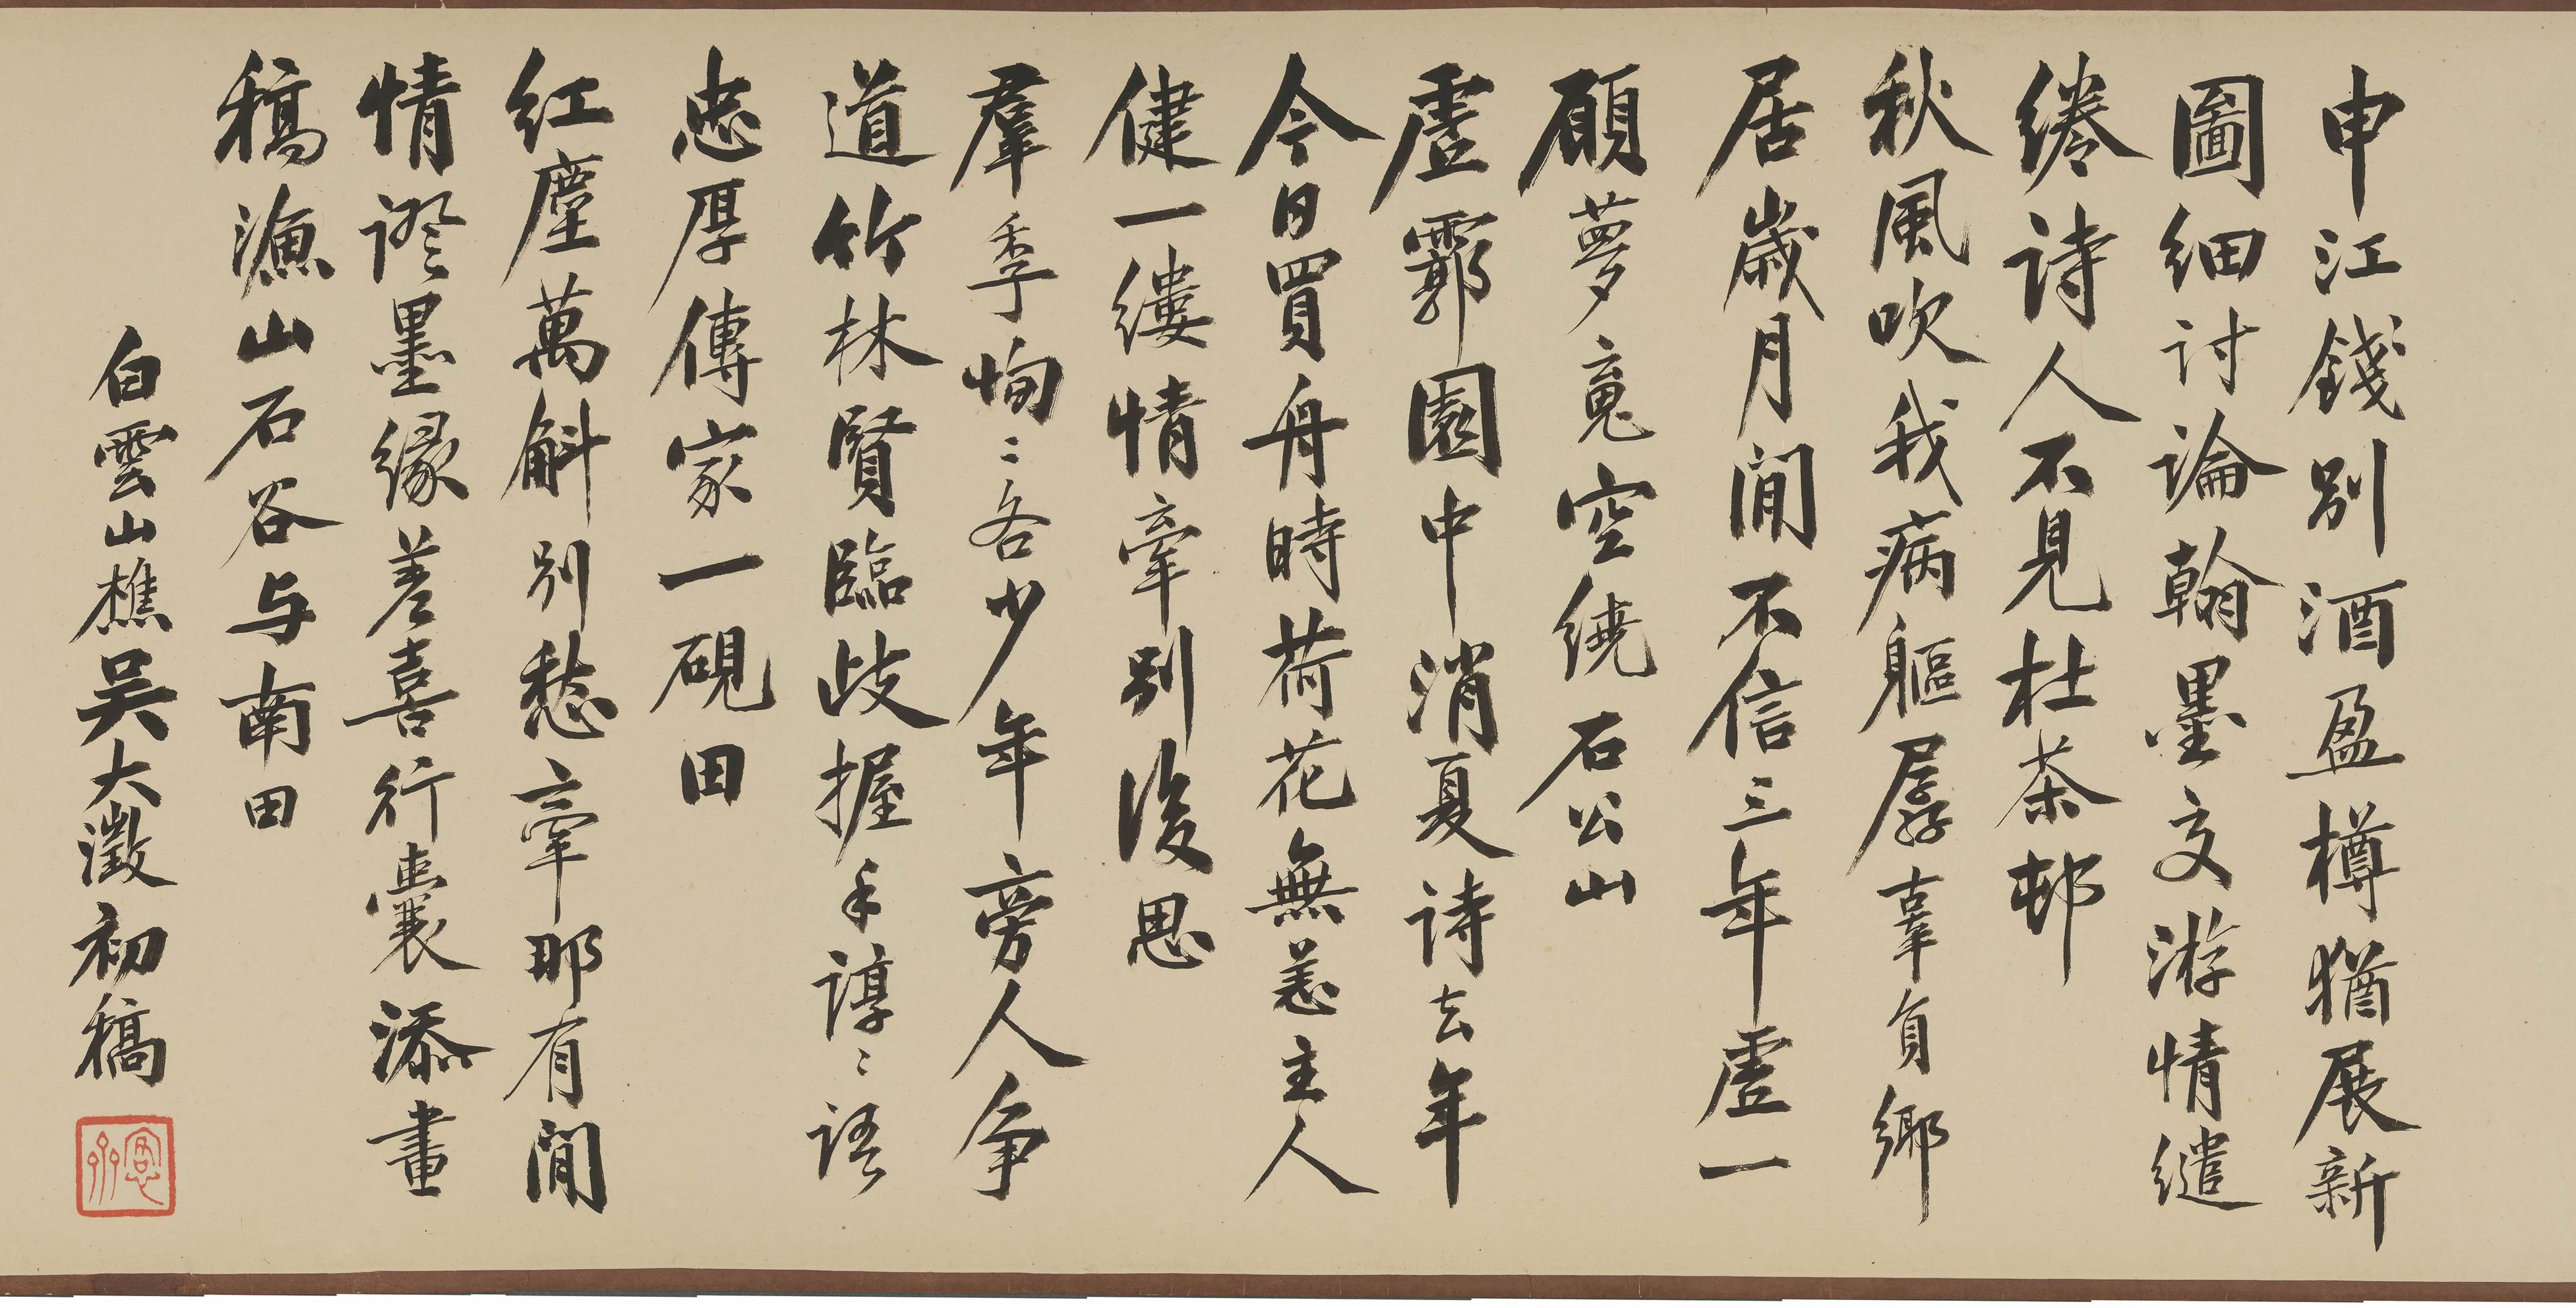 申江錢別酒盈樽猶展新
圖細討論翰墨交游情繾
綣詩人不見杜茶邨
秋風吹我病軀孱辜負鄉
居歲月閒不信三年虛一
願夢䰟空繞石公山
虛霩園中消夏詩去年
今日買舟時荷花無恙主人
健一縷情牽別後思
羣季恂〻各少年旁人爭
道竹林賢臨歧握手諄〻語
忠厚傳家一硯田
紅塵萬斛別愁牽那有閒
情證墨緣差喜行囊添畫
稿漁山石谷与南田
白雲山樵吳大澂初稿